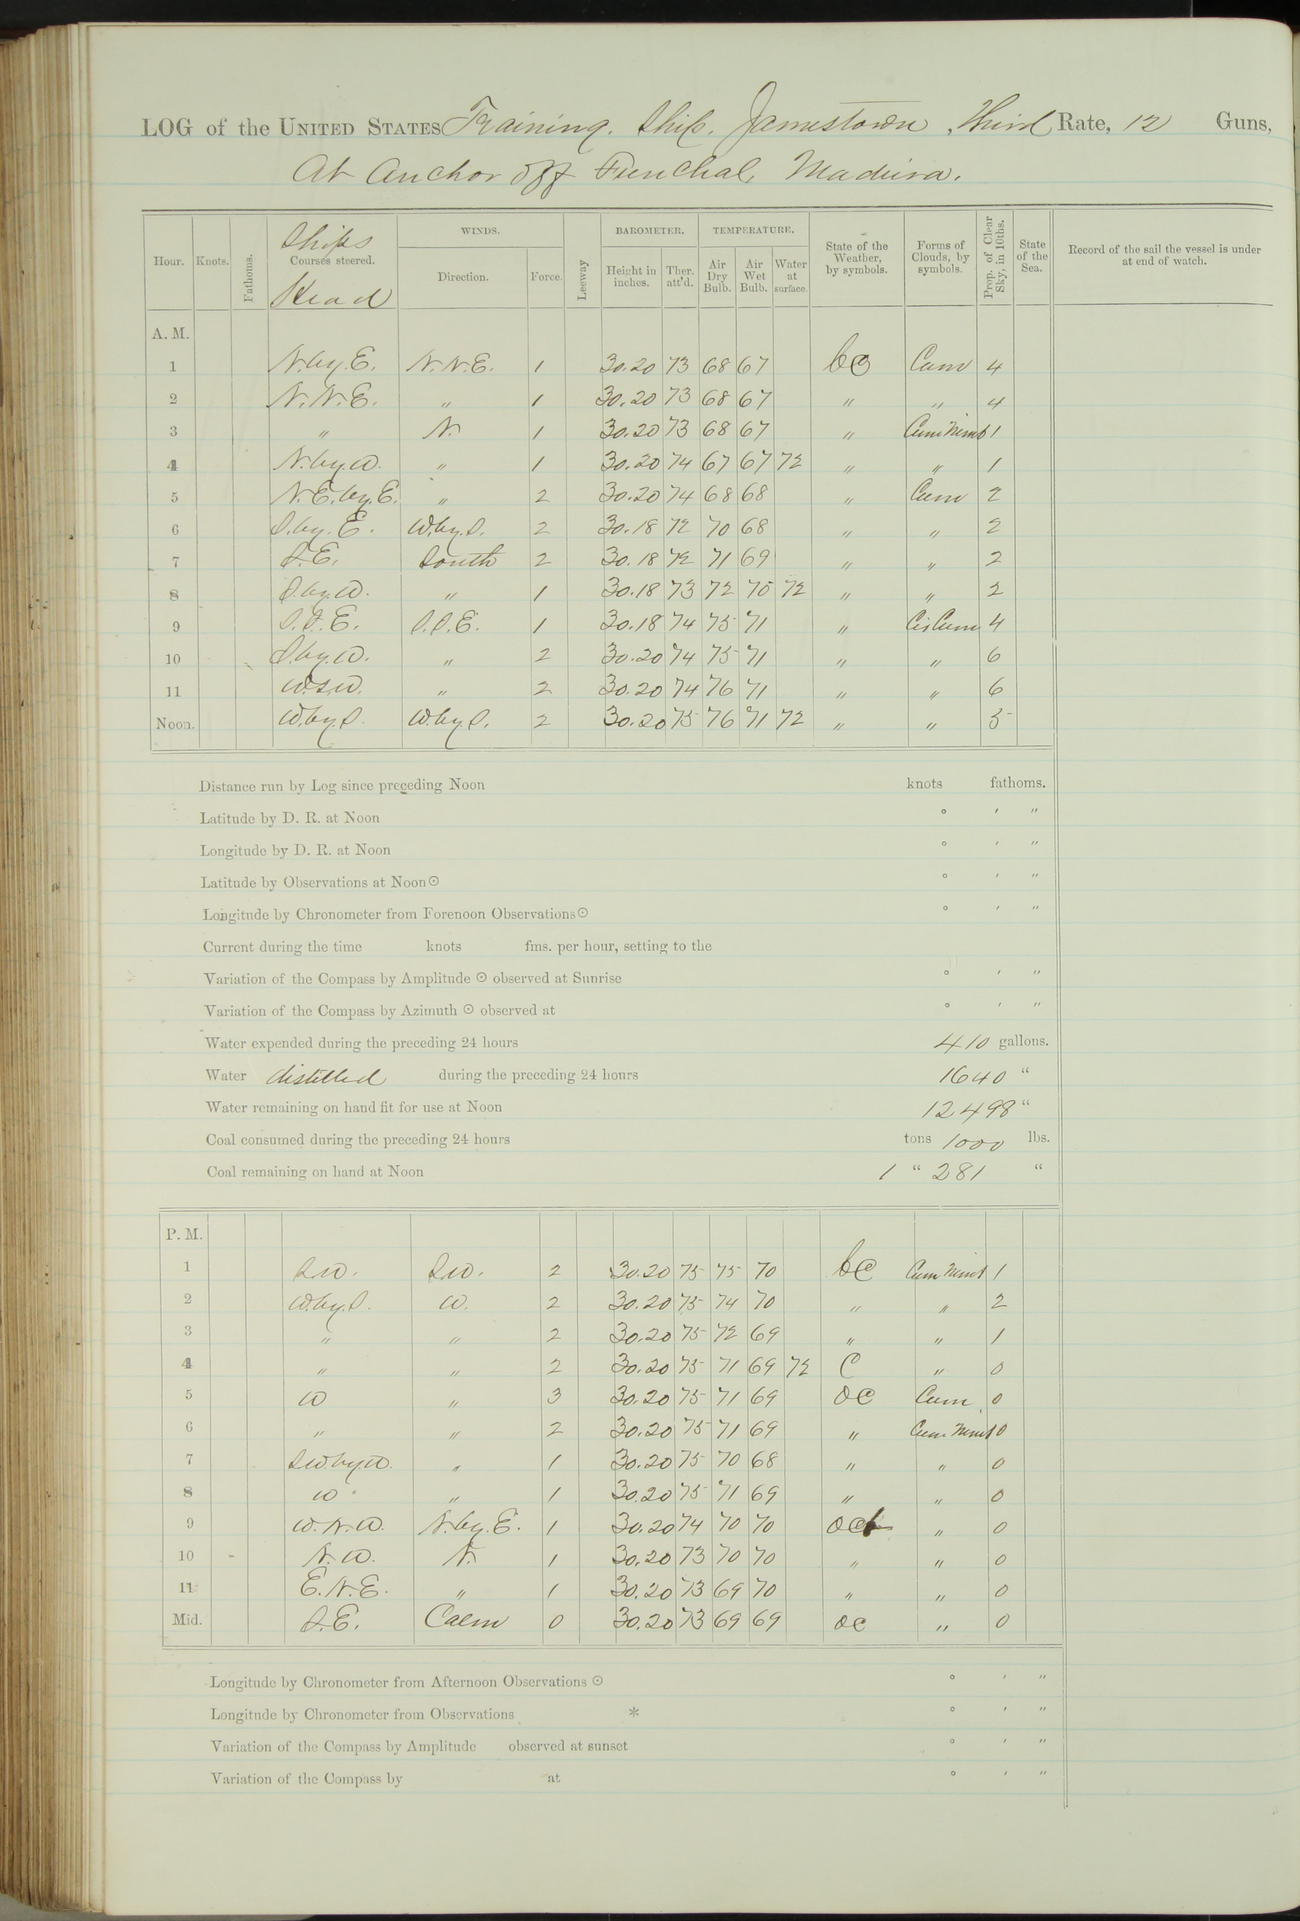 LOG of the UNITED STATES Training Ship Jamestown, Third Rate, 12 Guns,
At Anchor off Funchal, Madeira.
Hour. Knots. Fathoms. Ships Courses steered. Head WINDS. Direction. Force. Leeway BAROMETER. Height in inches. Ther. att'd. TEMPERATURE. Air Dry Bulb. Air Wet Bulb. Water at surface. State of the Weather, by symbols. Forms of Clouds, by symbols. Prop. of Clear Sky, in 10ths. State of the Sea. Record of the sail the vessel is under at end of watch.
A. M.
1 N.by.E. N.N.E. 1 30.20 73 68 67 bc Cum 4
2 N.N.E. " 1 30.20 73 68 67 " " 4
3 " N. 1 30.20 73 68 67 " Cum Nimb 1
4 N.by.W. " 1 30.20 74 67 67 72 " " 1
5 N.E.by.E. " 2 30.20 74 68 68 " Cum 2
6 S.by.E. W.by.S. 2 30.18 72 70 68 " " 2
7 S.E. South 2 30.18 72 71 69 " " 2
8 S.by.W. " 1 30.18 73 72 70 72 " " 2
9 S.S.E. S.S.E. 1 30.18 74 75 71 " Cir Cum 4
10 S.by.W. " 2 30.20 74 75 71 " " 6
11 W.S.W. " 2 30.20 74 76 71 " " 6
Noon. W.by.S. W.by.S. 2 30.20 75 76 71 72 " " 5
Distance run by Log since preceding Noon knots fathoms.
Latitude by D. R. at Noon ° ' "
Longitude by D. R. at Noon ° ' "
Latitude by Observations at Noon ☉ ° ' "
Longitude by Chronometer from Forenoon Observations ☉ ° ' "
Current during the time knots fms. per hour, setting to the
Variation of the Compass by Amplitude ☉ observed at Sunrise ° ' "
Variation of the Compass by Azimuth ☉ observed at ° ' "
Water expended during the preceding 24 hours 410 gallons.
Water distilled during the preceding 24 hours 1640 "
Water remaining on hand fit for use at Noon 12498 "
Coal consumed during the preceding 24 hours tons 1000 lbs.
Coal remaining on hand at Noon 1 " 281 "
P. M.
1 S.W. S.W. 2 30.20 75 75 70 bc Cum Nimb 1
2 W.by.S. W. 2 30.20 75 74 70 " " 2
3 " " 2 30.20 75 72 69 " " 1
4 " " 2 30.20 75 71 69 72 C " 0
5 W " 3 30.20 75 71 69 oc Cum 0
6 " " 2 30.20 75 71 69 " Cum Nimb 0
7 S.W.by.W. " 1 30.20 75 70 68 " " 0
8 W " 1 30.20 75 71 69 " " 0
9 W.N.W. N.by.E. 1 30.20 74 70 70 oc " 0
10 N.W. N. 1 30.20 73 70 70 " " 0
11 E.N.E. " 1 30.20 73 69 70 " " 0
Mid. S.E. Calm 0 30.20 73 69 69 oc " 0
Longitude by Chronometer from Afternoon Observations ☉ ° ' "
Longitude by Chronometer from Observations * ° ' "
Variation of the Compass by Amplitude observed at sunset ° ' "
Variation of the Compass by at ° ' "